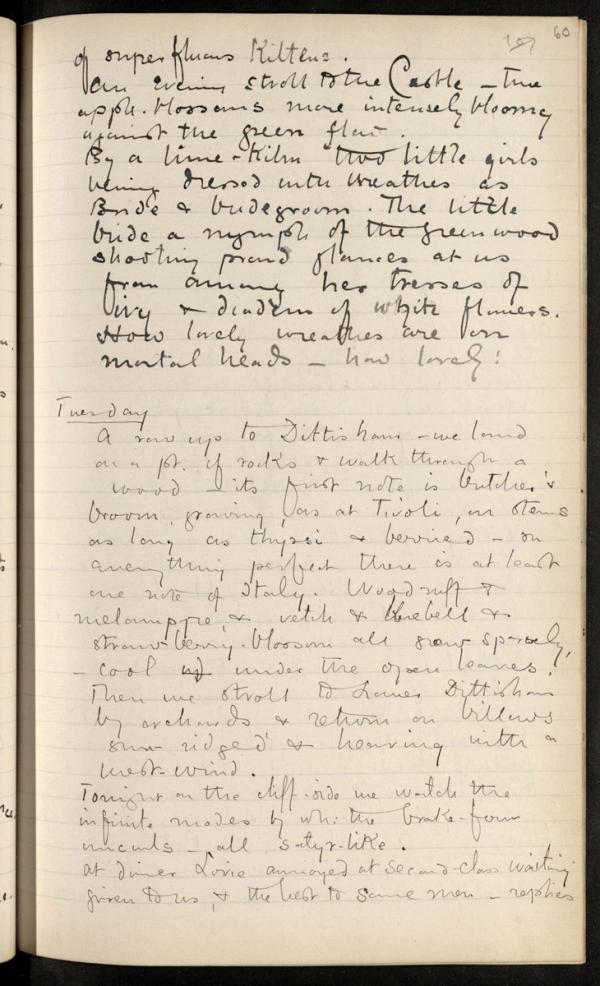 60
of superfluous Kittens.
An evening stroll to the Castle – the
apple-blossoms more intensely bloomy
against the green flat.
By a lime-Kiln two little girls
being dressed with wreathes as
Bride & bridegroom. The little
bride a nymph of the greenwood
shooting proud glances at us
from among her tresses of
ivy & diadem of white flowers.
How lovely wreathes are on
mortal heads – how lovely!
Tuesday
A row up to Dittisham – we land
on a pt. of rocks & walk through a
wood – its first note is butcher's
broom, growing, as at Tivoli, on stems
as long as thyrsi & berried – on
everything perfect there is at least
one note of Italy. Woodruff &
melampyre, & vetch & bluebell &
strawberry-blossom all grow sparsely,
– cool under the open leaves.
Then we stroll to Lower Dittisham
by orchards & return on billows
sun-ridged & heaving with a
west-wind.
Tonight on the cliff-side we watch the
infinite modes by wh: the brake-fern
uncurls – all satyr-like.
At dinner Lovie annoyed at second-class waiting
given to us, & the best to some men – replies